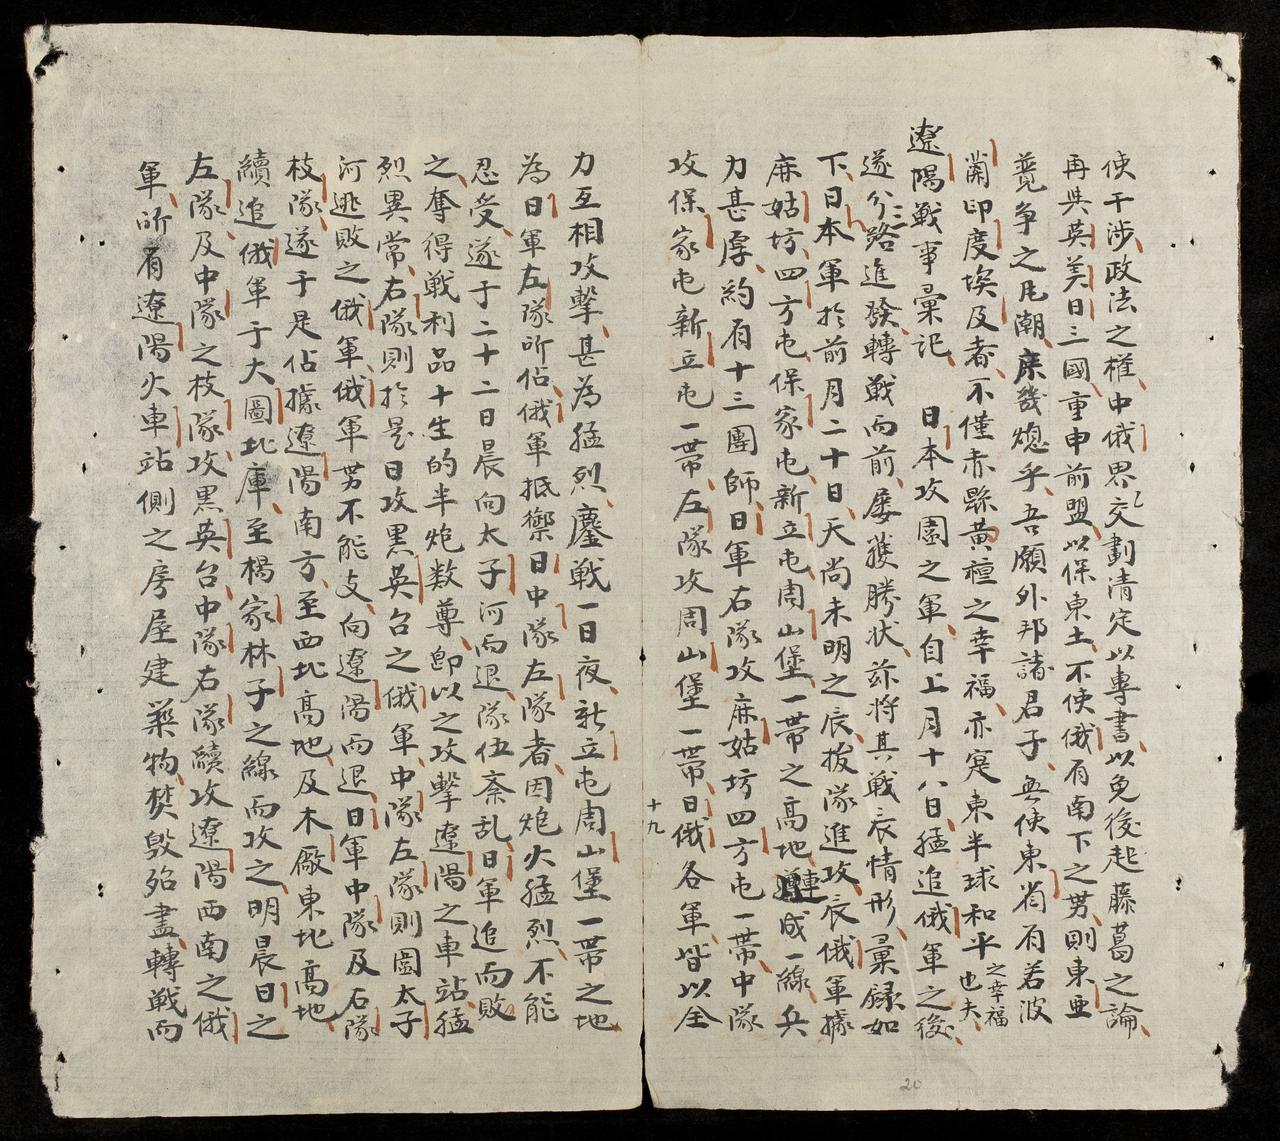 使干涉政法之權中俄界交劃清定以專書以免後起藤葛之論
再與英美日三國重申前盟以保東土不使俄有南下之势則東亜
競争之凡潮庶幾熄乎吾願外邦諸君子無使東省有若波
蘭印度埃及者不僅赤縣黄種之幸福亦寔東半球和平之幸福也夫
遼陽戦事彙记　日本攻圍之軍自上月十八日猛追俄軍之後
遂分三路進發轉戦而前屡獲勝状茲将其戦辰情形彙録如
下日本軍於前月二十日天尚未明之辰拔隊進攻辰俄軍據
麻姑坊四方屯保家屯新立屯周山堡一带之高地連成一線兵
力甚厚約有十三團師日軍右隊攻麻姑坊四方屯一带中隊
攻保家屯新立屯一带左隊攻周山堡一带日俄各軍皆以全
十九
力互相攻撃甚為猛烈鏖戦一日夜新立屯周山堡一带之地
為日軍左隊所佔俄軍抵禦日中隊左隊者因炮火猛烈不能
忍受遂于二十二日晨向太子河而退隊伍紊乱日軍追而敗
之奪得戦利品十生的半炮数尊即以之攻擊遼陽之車站猛
烈異常右隊則於是日攻黒英台之俄軍中隊左隊則圖太子
河逃敗之俄軍俄軍势不能支向遼陽而退日軍中隊及右隊
枝隊遂于是佔據遼陽南方至西北高地及木廠東北高地
續追俄軍于大圖北庫至楊家林子之線而攻之明晨日之
左隊及中隊之枝隊攻黒英台中隊右隊續攻遼陽西南之俄
軍所有遼陽火車站側之房屋建築物焚毁殆盡轉戦而
20